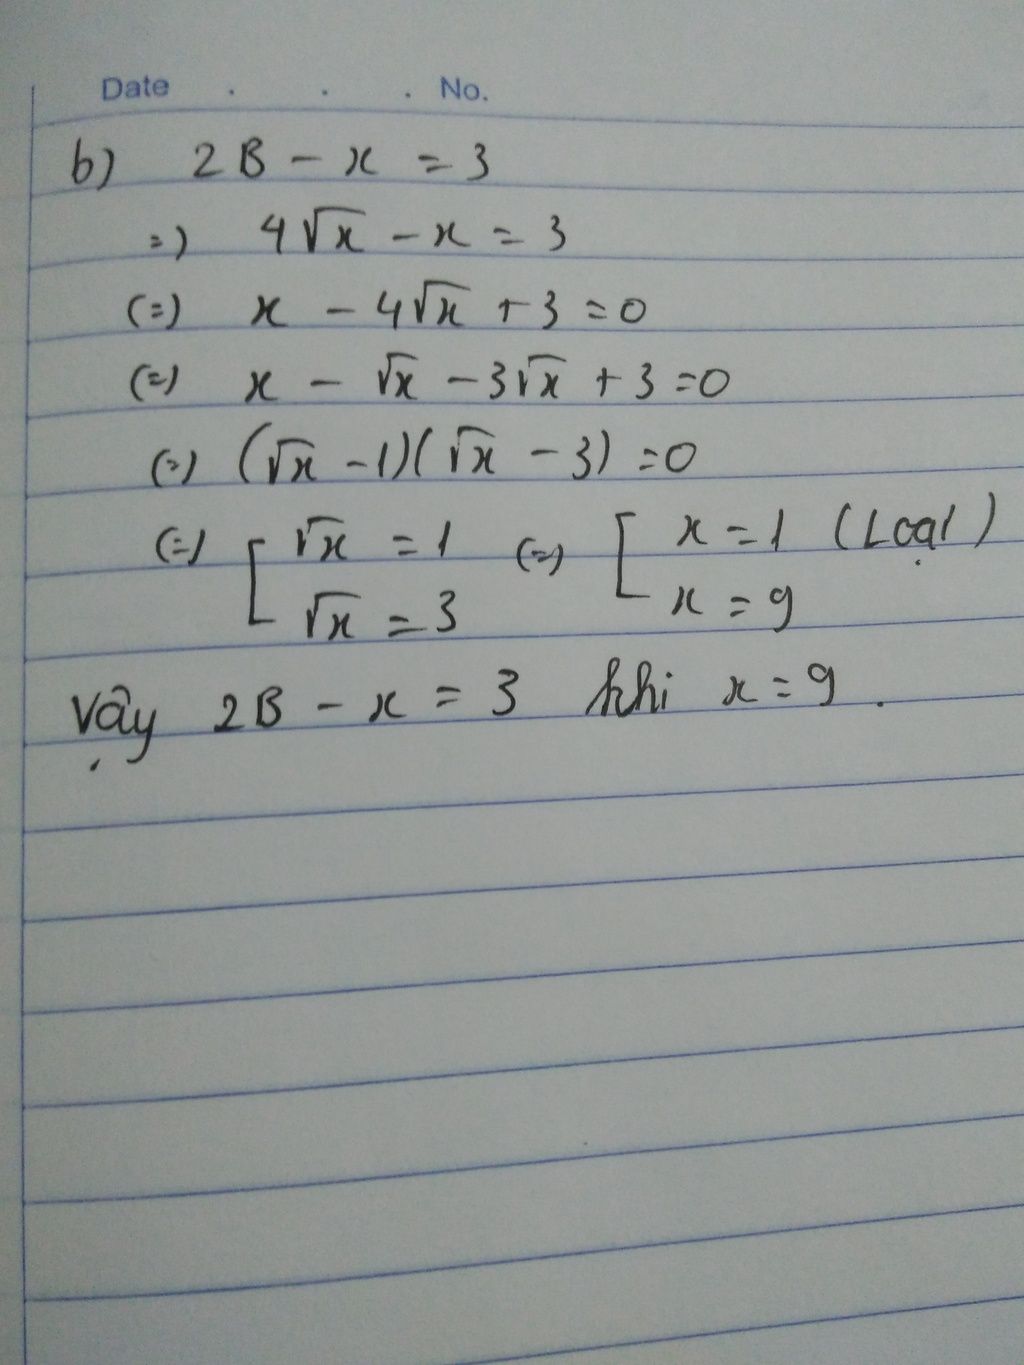 Date . . . No.
b) 2B - x = 3
=) 4√x - x = 3
(=) x - 4√x + 3 = 0
(=) x - √x - 3√x + 3 = 0
(=) (√x - 1)(√x - 3) = 0
(=) [ √x = 1 (=) [ x = 1 (Loại)
√x = 3 x = 9
Vậy 2B - x = 3 khi x = 9 .